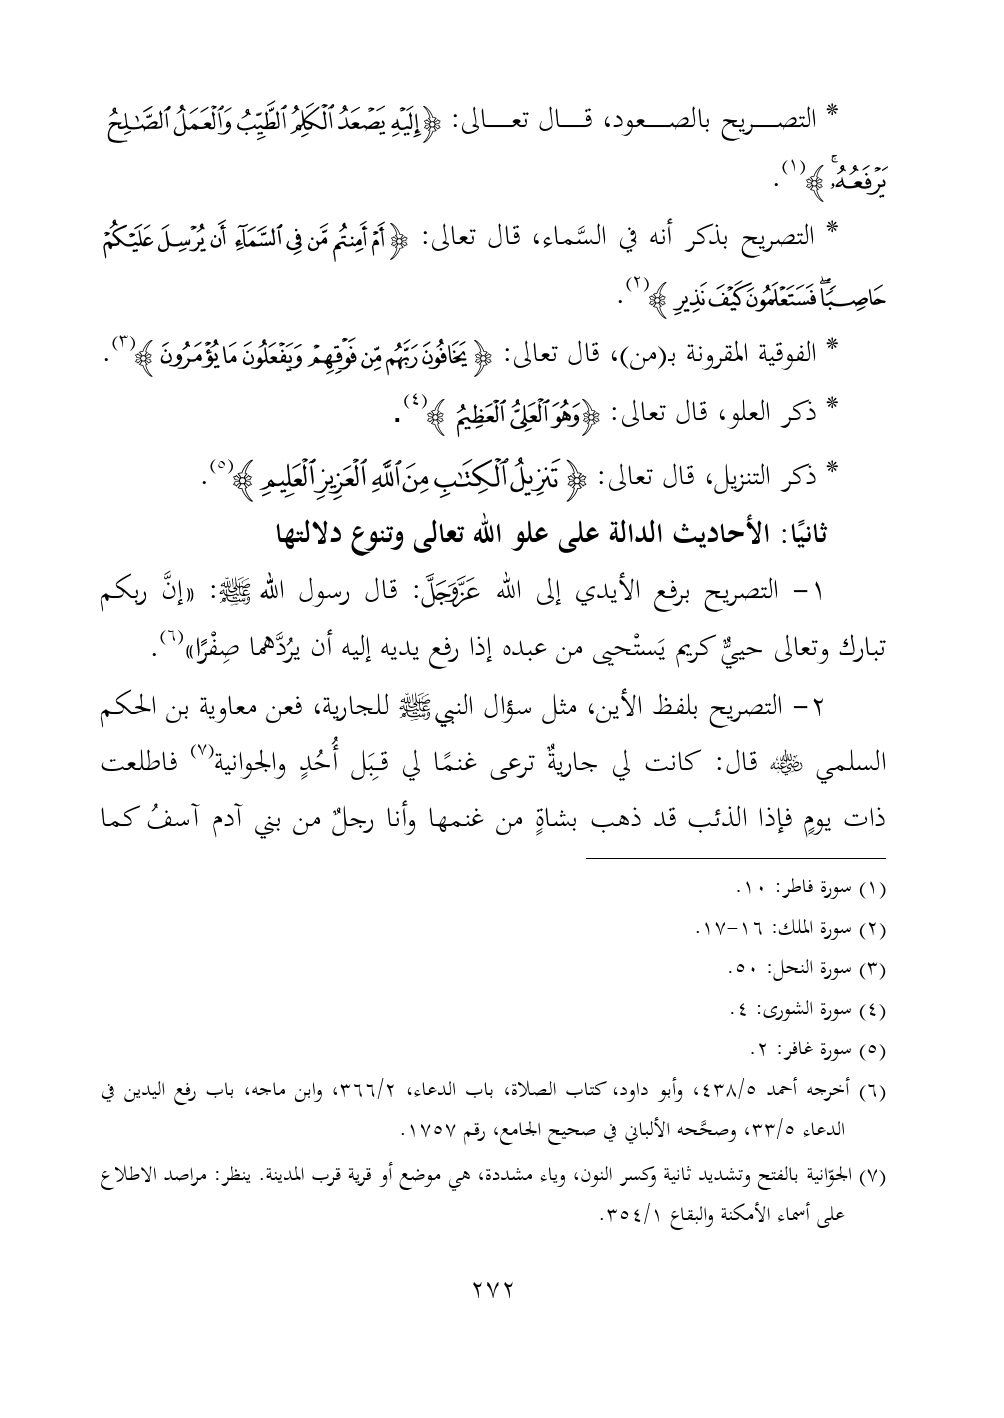 * التصـــريح بالصـــعود، قـــال تعـــالى: ﴿إِلَيْهِ يَصْعَدُ ٱلْكَلِمُ ٱلطَّيِّبُ وَٱلْعَمَلُ ٱلصَّـٰلِحُ
يَرْفَعُهُۥۚ﴾(١).
* التصريح بذكر أنه في السَّماء، قال تعالى: ﴿أَمْ أَمِنتُم مَّن فِى ٱلسَّمَآءِ أَن يُرْسِلَ عَلَيْكُمْ
حَاصِبًاۖ فَسَتَعْلَمُونَ كَيْفَ نَذِيرِ﴾(٢).
* الفوقية المقرونة بـ(من)، قال تعالى: ﴿يَخَافُونَ رَبَّهُم مِّن فَوْقِهِمْ وَيَفْعَلُونَ مَا يُؤْمَرُونَ﴾(٣).
* ذكر العلو، قال تعالى: ﴿وَهُوَ ٱلْعَلِىُّ ٱلْعَظِيمُ﴾(٤).
* ذكر التنزيل، قال تعالى: ﴿تَنزِيلُ ٱلْكِتَـٰبِ مِنَ ٱللَّهِ ٱلْعَزِيزِ ٱلْعَلِيمِ﴾(٥).
ثانيًا: الأحاديث الدالة على علو الله تعالى وتنوع دلالتها
١- التصريح برفع الأيدي إلى الله عَزَّوَجَلَّ: قال رسول الله ﷺ: «إنَّ ربكم
تبارك وتعالى حييٌّ كريم يَستْحيى من عبده إذا رفع يديه إليه أن يرُدَّهما صِفْرًا»(٦).
٢- التصريح بلفظ الأين، مثل سؤال النبي ﷺ للجارية، فعن معاوية بن الحكم
السلمي رضي الله عنه قال: كانت لي جاريةٌ ترعى غنمًا لي قِبَل أُحُدٍ والجوانية(٧) فاطلعت
ذات يومٍ فإذا الذئب قد ذهب بشاةٍ من غنمها وأنا رجلٌ من بني آدم آسفُ كما
(١) سورة فاطر: ١٠.
(٢) سورة الملك: ١٦-١٧.
(٣) سورة النحل: ٥٠.
(٤) سورة الشورى: ٤.
(٥) سورة غافر: ٢.
(٦) أخرجه أحمد ٤٣٨/٥، وأبو داود، كتاب الصلاة، باب الدعاء، ٣٦٦/٢، وابن ماجه، باب رفع اليدين في
الدعاء ٣٣/٥، وصحَّحه الألباني في صحيح الجامع، رقم ١٧٥٧.
(٧) الجوّانية بالفتح وتشديد ثانية وكسر النون، وياء مشددة، هي موضع أو قرية قرب المدينة. ينظر: مراصد الاطلاع
على أسماء الأمكنة والبقاع ٣٥٤/١.
٢٧٢